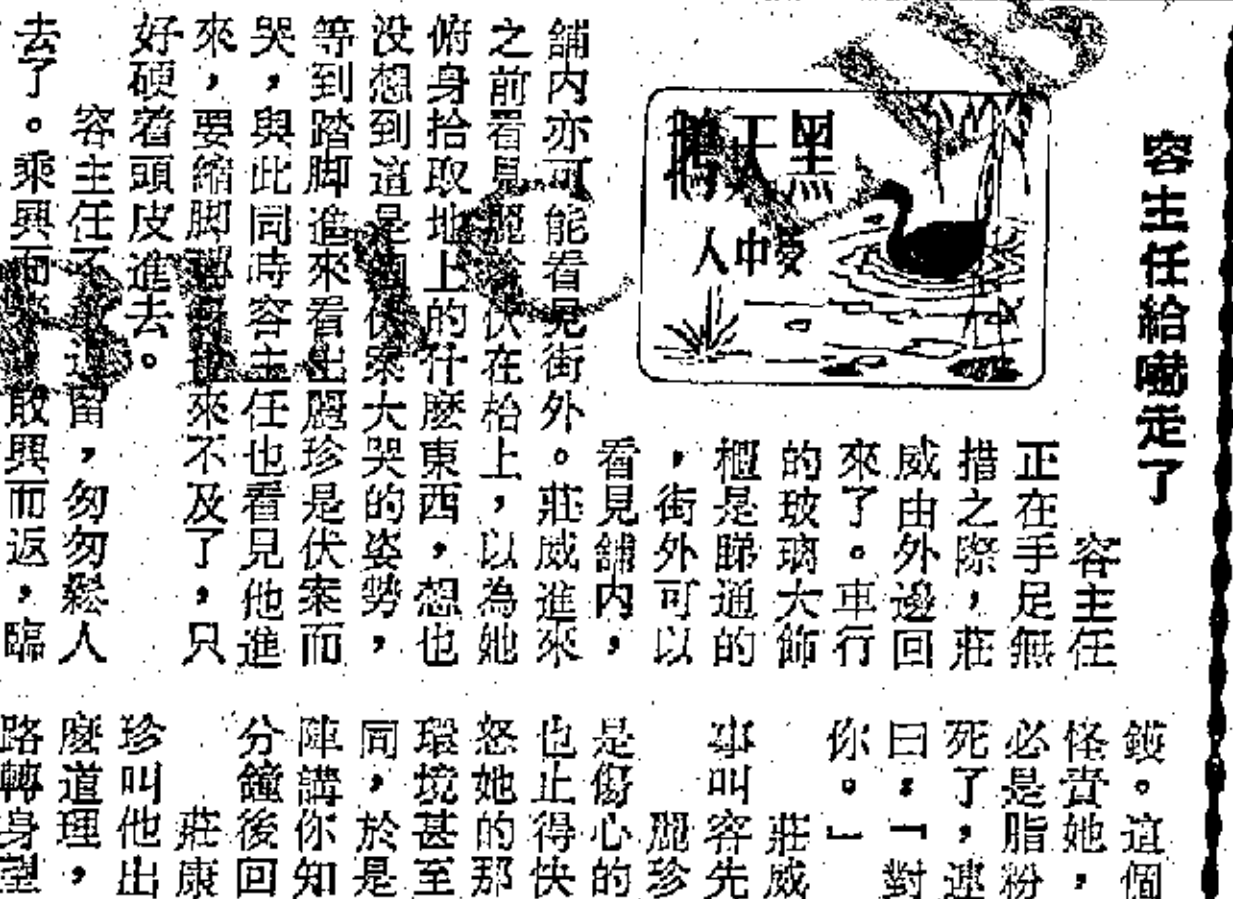 容主任給嚇走了
黑天鵝
中人
容主任
正在手足無
措之際，莊
威由外邊回
來了。車行
的玻璃大飾
櫃是睇通的
，街外可以
看見舖内，
舖内亦可能看見街外。莊威進來
之前看見麗珍伏在枱上，以為她
俯身拾取地上的什麽東西，想也
没想到這是個伏案大哭的姿勢，
等到踏脚進來看出麗珍是伏案而
哭，與此同時容主任也看見他進
來，要縮脚轉身也來不及了，只
好硬着頭皮進去。
容主任了留，匆匆鬆人
去了。乘興而敗興而返，臨
鍍。這個
怪責她，
必是脂粉
死了，連
曰：「對
你。」
莊威
事叫容先
麗珍
是傷心的
也止得快
怒她的那
環境甚至
同，於是
陣講你知
分鐘後回
莊康
珍叫他出
麽道理，
路轉身望